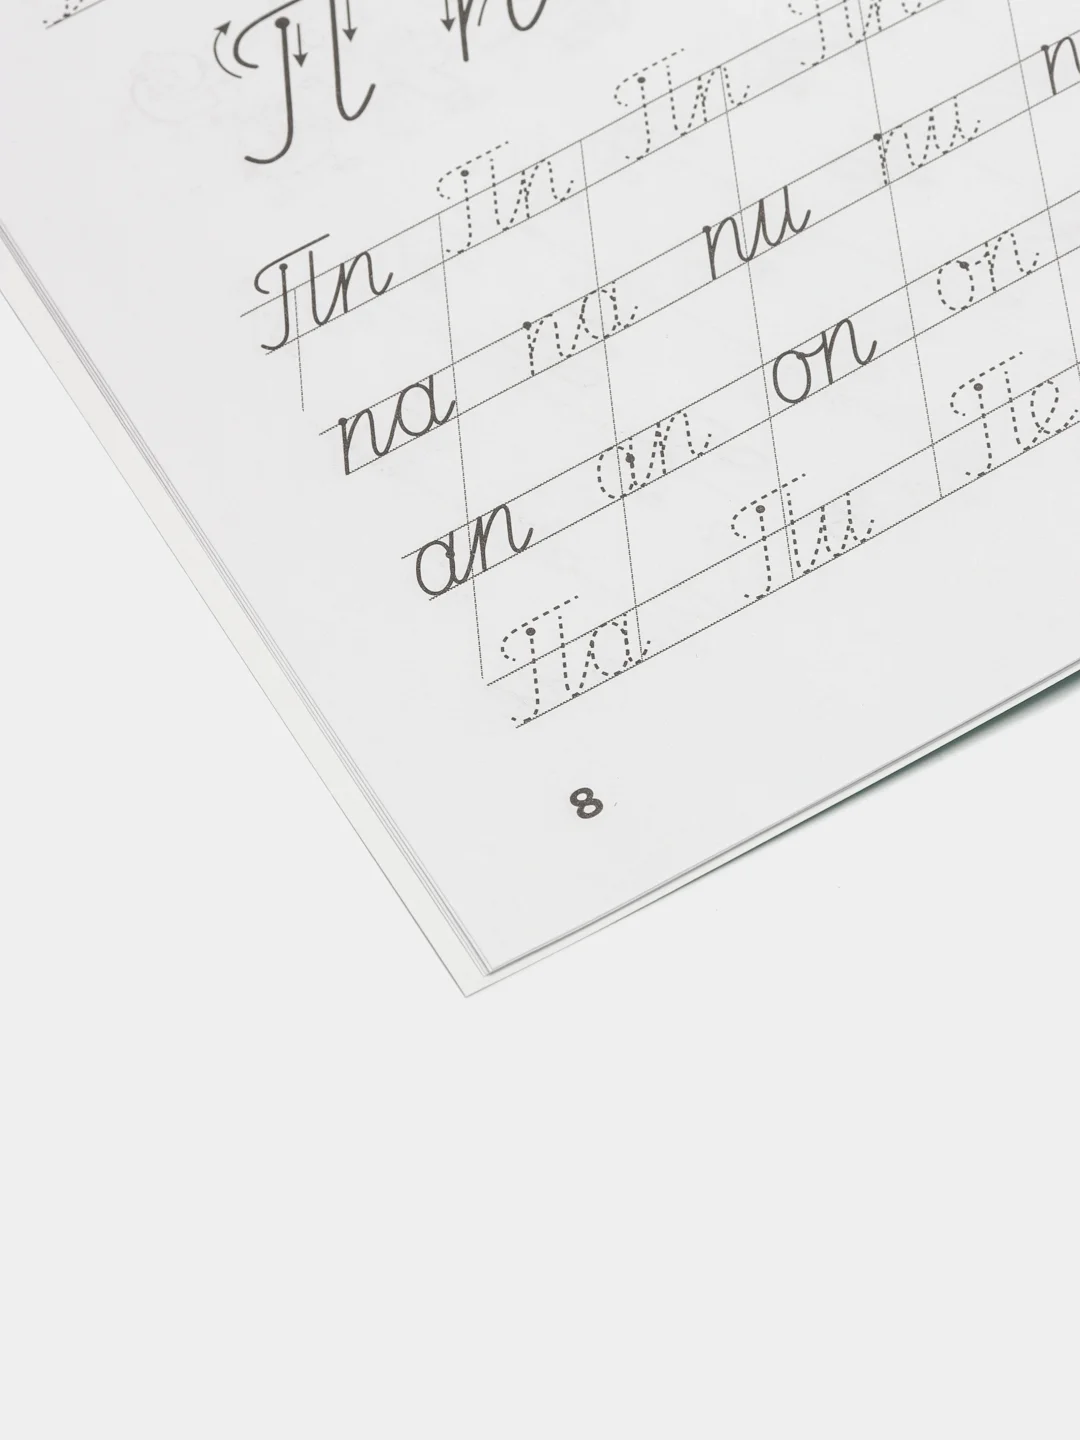 П п
Пп Пп Пп Пп
па па пи пи
ап ап оп оп
Па Пи Пе
8